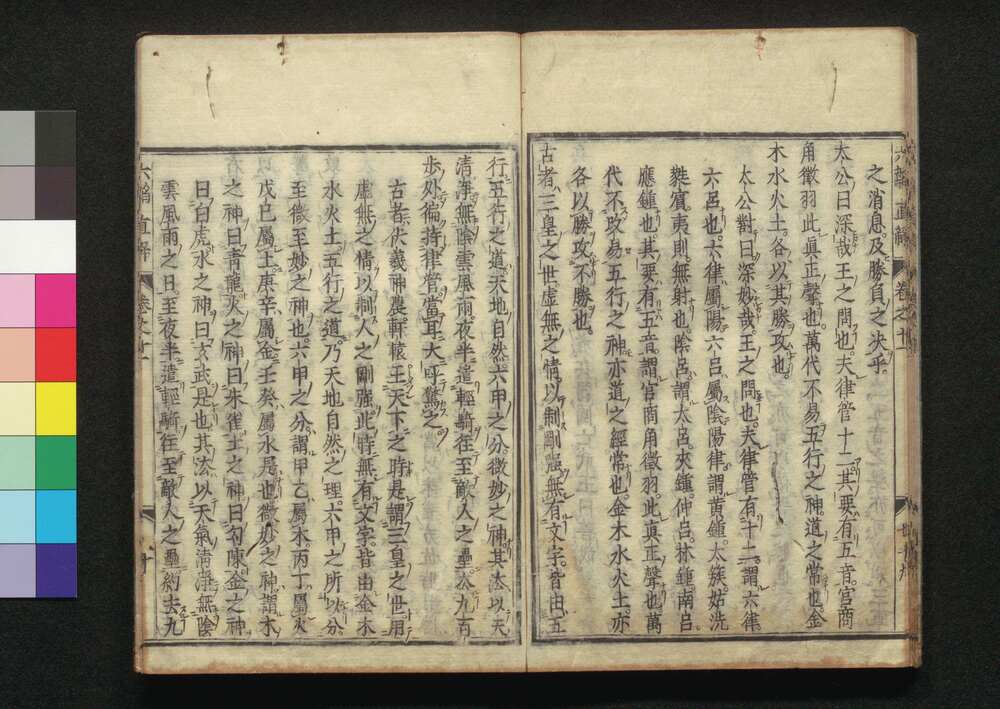 六韜直解 卷之十一
之消息及勝負之決乎
太公曰深哉王之問也夫律管十二其要有五音宮商
角徵羽此眞正聲也萬代不易五行之神道之常也金
木水火土各以其勝攻也
太公對曰深妙哉王之問也夫律管有十二謂六律
六呂也六律屬陽六呂屬陰陽律謂黃鍾太簇姑洗
蕤賓夷則無射也陰呂謂太呂夾鍾仲呂林鍾南呂
應鍾也其要有五音謂宮商角徵羽此眞正聲也萬
代不改易五行之神亦道之經常也金木水火土亦
各以勝攻不勝也
古者三皇之世虛無之情以制剛强無有文字皆由五
行五行之道天地自然六甲之分微妙之神其法以天
清淨無陰雲風雨夜半遣輕騎往至敵人之壘去九百
步外徧持律管當耳大呼驚之
古者伏羲神農軒轅王天下之時是謂三皇之世用
虛無之情以制人之剛强此時無有文字皆由金木
水火土五行之道乃天地自然之理六甲之所以分
至微至妙之神也六甲之分謂甲乙屬木丙丁屬火
戊己屬土庚辛屬金壬癸屬水是也微妙之神謂木
之神曰靑龍火之神曰朱雀土之神曰勾陳金之神
曰白虎水之神曰玄武是也其法以天氣淸淨無陰
雲風雨之日至夜半遣輕騎往至敵人之壘約去九
六韜直解 卷之十一